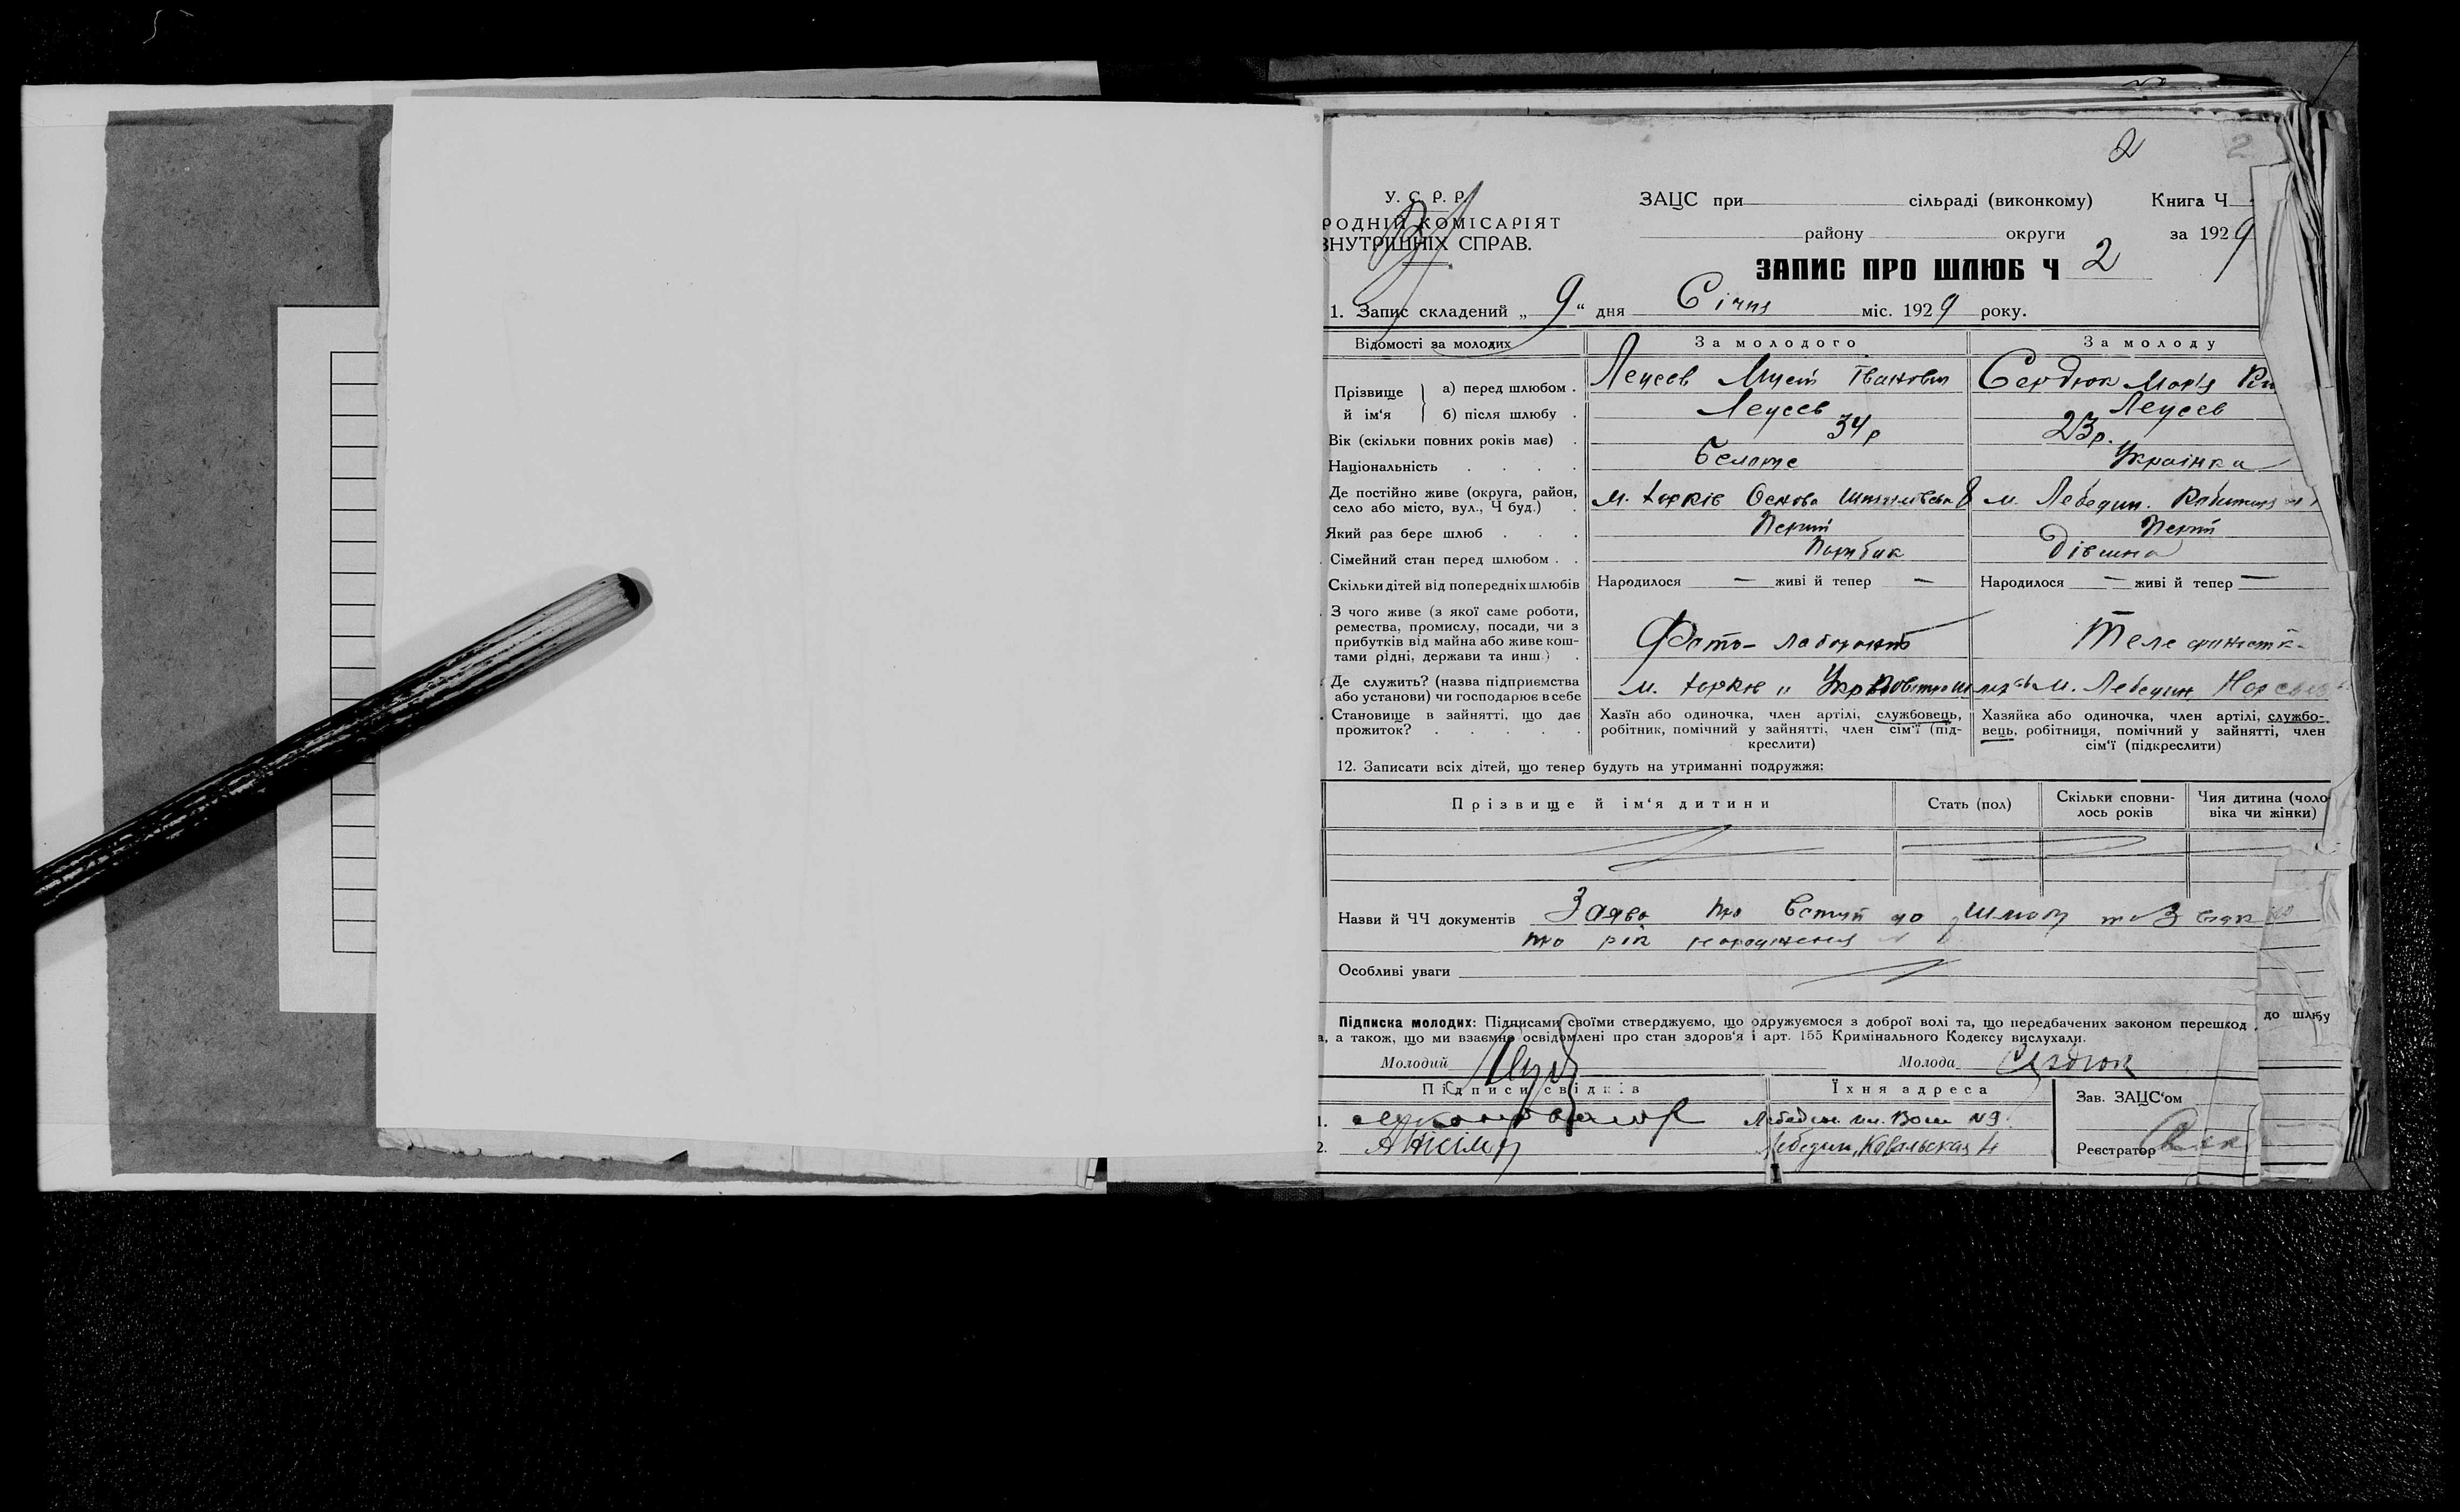 2
2
У. С. Р. Р.
РОДНІЙ КОМІСАРІЯТ
ВНУТРІШНІХ СПРАВ.
ЗАЦС при сільраді (виконкому) Книга Ч
району округи за 1929
ЗАПИС ПРО ШЛЮБ Ч 2
1. Запис складений „ 9 “ дня Січня міс. 1929 року.
Відомості за молодих
За молодого
За молоду
Прізвище й ім‘я
а) перед шлюбом .
Іванович
Сердюк Марія
б) після шлюбу .
Леусев
Леусев
Вік (скільки повних років має) .
34 р
23 р.
Національність . . . .
Українка
Де постійно живе (округа, район,
село або місто, вул., Ч буд.) .
м. Харків Основа 8
м. Лебедин.
Який раз бере шлюб . . .
Перший
Перший
Сімейний стан перед шлюбом . .
Парубок
Дівчина
Скільки дітей від попередніх шлюбів
Народилося — живі й тепер —
Народилося — живі й тепер —
З чого живе (з якої саме роботи,
ремества, промислу, посади, чи з
прибутків від майна або живе кош-
тами рідні, держави та инш.) .
Фото-лаборант
Телефоністк
Де служить? (назва підприємства
або установи) чи господарює в себе
м. Харків
м. Лебедин
Становище в зайнятті, що дає
прожиток? . . . . .
Хазїн або одиночка, член артілі, службовець,
робітник, помічний у зайнятті, член сім‘ї (під-
креслити)
Хазяйка або одиночка, член артілі, службо-
вець, робітниця, помічний у зайнятті, член
сім‘ї (підкреслити)
12. Записати всіх дітей, що тепер будуть на утриманні подружжя:
Прізвище й ім‘я дитини
Стать (пол)
Скільки сповни-
лось років
Чия дитина (чоло
віка чи жінки)
Назви й ЧЧ документів Заява про вступ до шлюбу та
про рік народження
Особливі уваги
Підписка молодих: Підписами своїми стверджуємо, що одружуємося з доброї волі та, що передбачених законом перешкод до шлюбу
а, а також, що ми взаємно освідомлені про стан здоров‘я і арт. 155 Кримінального Кодексу вислухали.
Молодий
Молода Сердюк
Підписи свідків
Їхня адреса
Зав. ЗАЦС‘ом
1.
№9
2.
Лебедин, Ковальская 4
Реєстратор